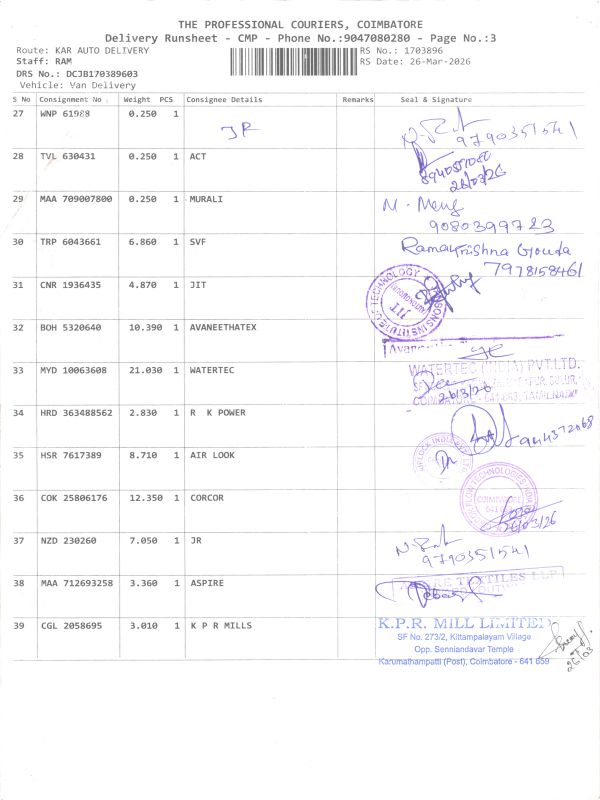 THE PROFESSIONAL COURIERS, COIMBATORE
Delivery Runsheet - CMP - Phone No.:9047080280 - Page No.:3
Route: KAR AUTO DELIVERY
RS No.: 1703896
Staff: RAM
RS Date: 26-Mar-2026
DRS No.: DCJB170389603
Vehicle: Van Delivery
S No Consignment No. Weight PCS Consignee Details Remarks Seal & Signature
27 WNP 61988 0.250 1 JR
9790351541
28 TVL 630431 0.250 1 ACT
26/03/26
29 MAA 709007800 0.250 1 MURALI
9080399723
30 TRP 6043661 6.860 1 SVF
Ramakrishna Gouda
7978158461
31 CNR 1936435 4.870 1 JIT
JIT
32 BOH 5320640 10.390 1 AVANEETHATEX
33 MYD 10063608 21.030 1 WATERTEC
WATERTEC (INDIA) PVT.LTD.
26/3/26
34 HRD 363488562 2.830 1 R K POWER
35 HSR 7617389 8.710 1 AIR LOOK
36 COK 25806176 12.350 1 CORCOR
COIMBATORE
26/03/26
37 NZD 230260 7.050 1 JR
9790351541
38 MAA 712693258 3.360 1 ASPIRE
TEXTILES LLP
39 CGL 2058695 3.010 1 K P R MILLS
K.P.R. MILL LIMITED
SF No. 273/2, Kittampalayam Village
Opp. Senniandavar Temple
Karumathampatti (Post), Coimbatore - 641 659
26/03